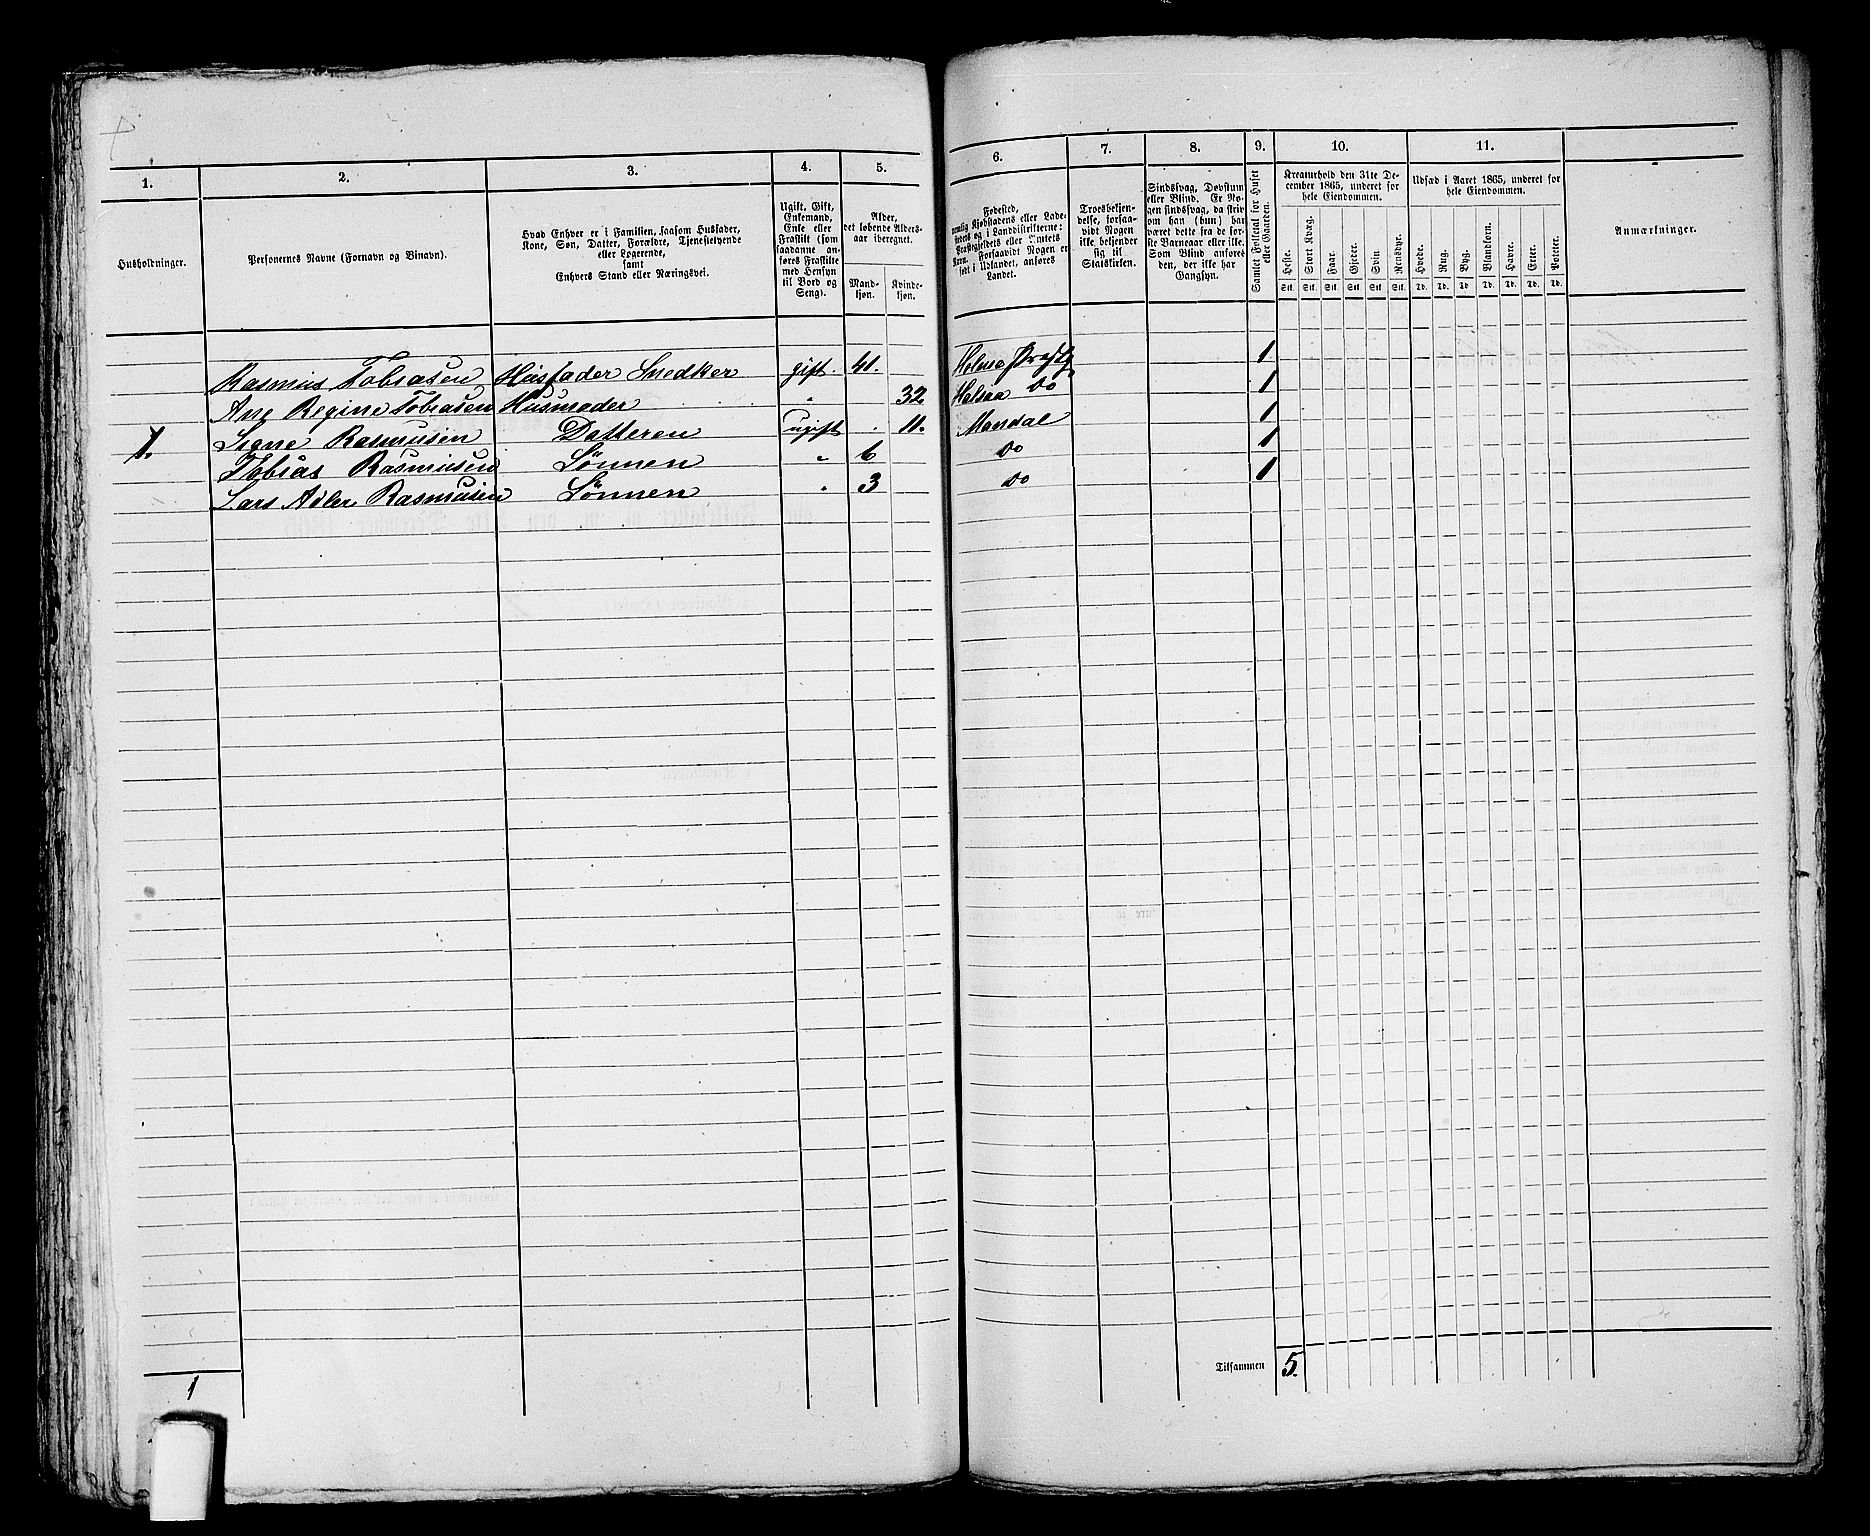 1. 2. 3. 4. 5. 6. 7. 8. 9. 10. 11.
Husholdninger.
Personernes Navne (Fornavn og Binavn).
Hvad Enhver er i Familien, saasom Husfader,
Kone, Søn, Datter, Forældre, Tjenestetyende
eller Logerende,
samt
Enhvers Stand eller Næringsvei.
Ugift, Gift,
Enkemand,
Enke eller
Fraskilt (som
saadanne an-
føres Fraskilte
med Hensyn
til Bord og
Seng).
Alder,
det løbende Alders-
aar iberegnet.
Mand-
kjøn.
Kvinde-
kjøn.
Fødested,
nemlig Kjøbstadens eller Lade-
stedets og i Landdistrikterne:
Præstegjeldets eller Amtets
Navn. Forsaavidt Nogen er
født i Udlandet, anføres
Landet.
Troesbekjen-
delse, forsaa-
vidt Nogen
ikke bekjender
sig til
Statskirken.
Sindssvag, Døvstum
eller Blind. Er No-
gen sindssvag, da skriv
om han (hun) har
været dette fra de for-
ste Barneaar eller ikke.
Som Blind anføre
den, der ikke har
Gangsyn.
Samlet Folketal for Huset
eller Gaarden.
Kreaturhold den 31te De-
cember 1865, underet for
hele Eiendommen.
Heste. Stort Kvæg. Faar. Gjeter. Svin Rensdyr.
Stk. Stk. Stk. Stk. Stk. Stk.
Udsæd i Aaret 1865, underet for
hele Eiendommen.
Hvede. Rug. Byg. Blandkorn. Havre. Erter. Poteter.
Td. Td. Td. Td. Td. Td. Td.
Anmærkninger.
Rasmus Tobiasen Husfader Snedker gift. 41. 1
Ane Regine Tobiasen Husmoder " 32 Halsaa Do 1
1. Signe Rasmusen Datteren ugift . 11. Mandal 1
Tobias Rasmusen Sønnen " 6 Do 1
Lars Adler Rasmusen Sønnen " 3 Do 1
Tilsammen 5.
1